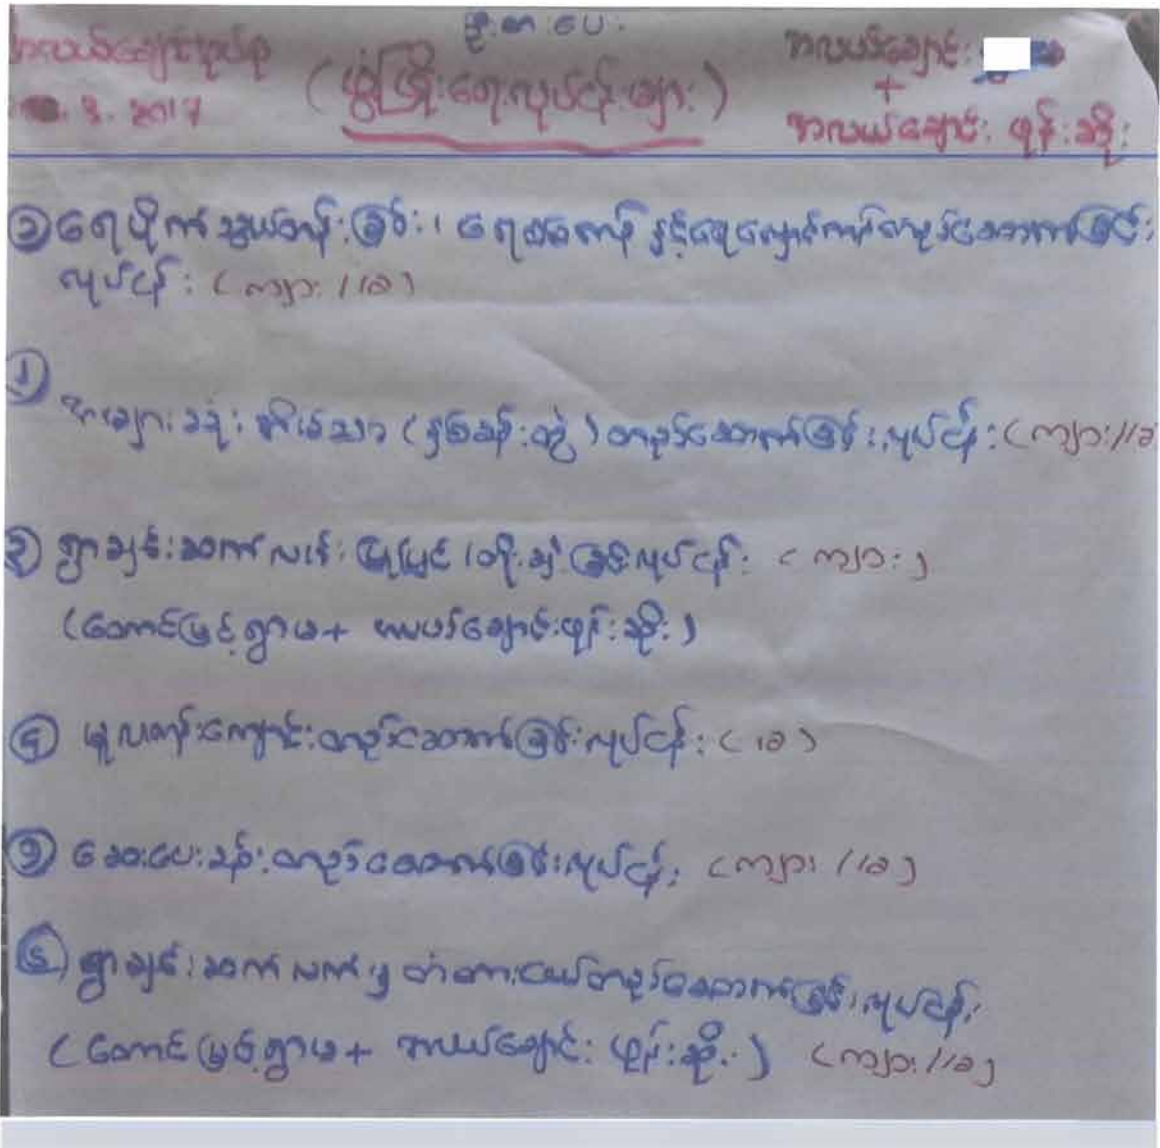 ဦးစားပေး
အလယ်ချောင်းအုပ်စု
(ဖွံ့ဖြိုးရေးလုပ်ငန်းများ)
အလယ်ချောင်း
+
၃. 2017
အလယ်ချောင်း ဖုန်းဆိုး
၁ ရေပိုက်သွယ်တန်းခြင်း၊ ရေစစ်ကန် နှင့်ရေလှောင်ကန်တည်ဆောက်ခြင်း
လုပ်ငန်း (ကျား//ခ)
၂
အများသုံး အိမ်သာ (နှစ်ခန်းတွဲ) တည်ဆောက်ခြင်းလုပ်ငန်း (ကျား//ခ
၃ ရွာချင်းဆက်လမ်း ပြုပြင်/တိုးချဲ့ခြင်းလုပ်ငန်း (ကျား)
(တောင်မြင့်ရွာမ + အလယ်ချောင်းဖုန်းဆိုး)
၄ မူလတန်းကျောင်းတည်ဆောက်ခြင်းလုပ်ငန်း (၊ခ)
၅ ဆေးပေးခန်းတည်ဆောက်ခြင်းလုပ်ငန်း (ကျား //ခ)
၆ ရွာချင်းဆက်လမ်းမှ တံတားငယ်တည်ဆောက်ခြင်းလုပ်ငန်း
(တောင်မြင့်ရွာမ + အလယ်ချောင်း ဖုန်းဆိုး) (ကျား//ခ)